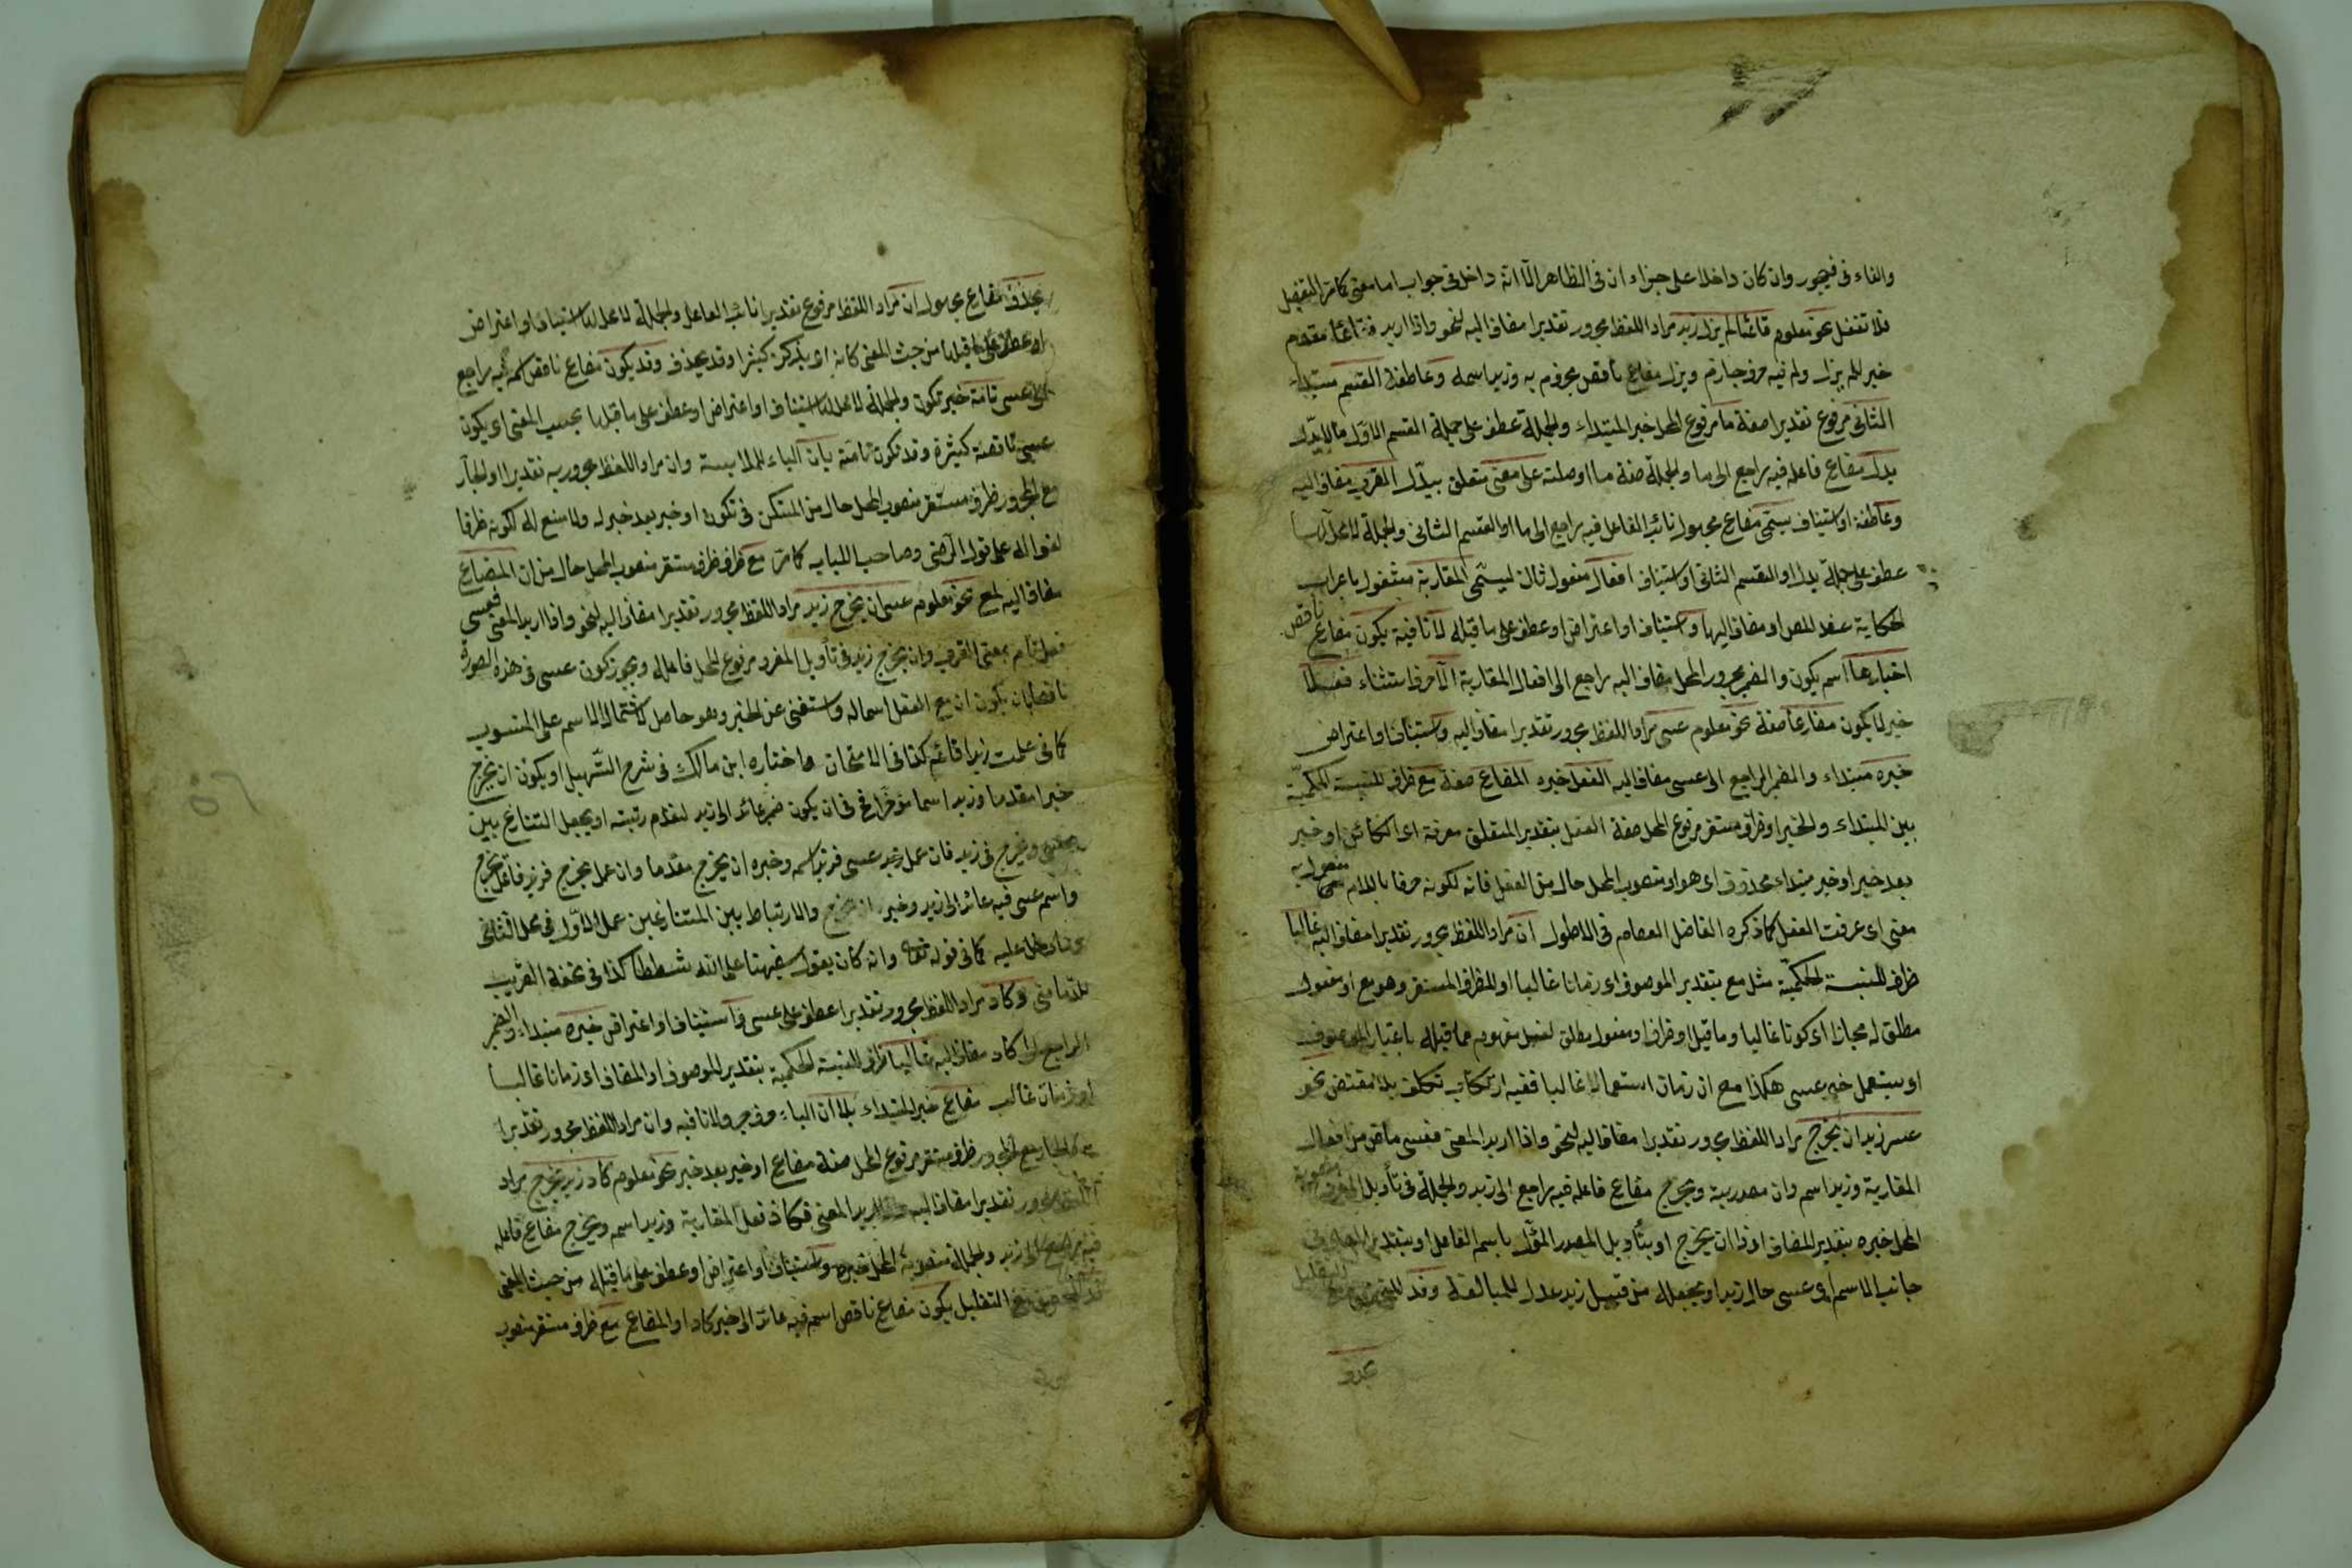 والفاء فى فيجوز وان كان داخلا على جزاء ان فى الظاهر الا انه داخل فى جواب اما معنى كما مر التفصيل
فلا تغفل نحو معلوم قائما لم يزل زيد مراد اللفظ مجرور تقديرا مضاف اليه لنحو واذا اريد فقائما مقدم
خبر للم يزل ولم فيه حرف جازم ويزل مضارع ناقص مجزوم به وزيد اسمه وعاطفة القسم مبتداء
الثانى مرفوع تقديرا صفة ما مرفوع المحل خبر المبتداء والجملة عطف على جملة القسم الاول ما لا يدل
يدل مضارع فاعله فيه راجع الى ما والجملة صفة ما او صلته على معنى متعلق بيدل القرب مضاف اليه
وعاطفة او استيناف يسمى مضارع مجهول نائب الفاعل فيه راجع الى ما او القسم الثانى والجملة لا محل لها
عطف على جملة يدل او القسم الثانى او استيناف افعال مفعول ثان ليسمى المقاربة مشغول باعراب
الحكاية عند المص او مضاف اليها واستيناف او اعتراض او عطف على ما قبله لا نافية يكون مضارع ناقص
اخبارها اسم يكون والضمير مجرور المحل مضاف اليه راجع الى افعال المقاربة الا حرف استثناء فعلا
خبر لا يكون مضارعا صفة نحو معلوم عسى مراد اللفظ مجرور تقديرا مضاف اليه واستيناف او اعتراض
خبره مبتداء والضمير الراجع الى عسى مضاف اليه الفعل خبره المضارع صفة مع ظرف للنسبة الحكمية
بين المبتداء والخبر او ظرف مستقر مرفوع المحل صفة الفعل بتقدير المتعلق معرفة اى الكائن او خبر
بعد خبر او خبر مبتداء محذوف اى هو او منصوب المحل حال من الفعل فانه لكونه معرفا باللام مفعول به
معنى اى عرفت الفعل كما ذكره الفاضل العصام فى الاطول ان مراد اللفظ مجرور تقديرا مضاف اليه غالبا
ظرف للنسبة الحكمية مثل مع بتقدير الموصوف اى زمانا غالبا او للظرف المستقر وهو مع او مفعول
مطلق له مجازا اى كونا غالبا وما قيل او ظرف او مفعول مطلق لفعل مفهوم مما قبله باعتبار الموصوف
او يستعمل خبر عسى هكذا مع ان زمان استعمالا غالبا ففيه ارتكاب تكلف بلا مقتض نحو
عسى زيد ان يخرج مراد اللفظ مجرور تقديرا مضاف اليه لنحو واذا اريد المعنى فعسى ماض من افعال
المقاربة وزيد اسم وان مصدرية ويخرج مضارع فاعله فيه راجع الى زيد والجملة فى تأويل المفرد منصوبة
المحل خبره بتقدير المضاف او ذا ان يخرج او بتأويل المصدر المؤل باسم الفاعل او بتقدير المضاف فى
جانب الاسم اى عسى حال زيد او بجعله من قبيل زيد عدل للمبالغة وقد للتحقيق مع التقليل
يحذف
يحذف مضارع مجهول ان مراد اللفظ مرفوع تقديرا نائب الفاعل والجملة لا محل لها استيناف او اعتراض
او عطف على ما قبلها من حيث المعنى كانه اى يذكر كثيرا وقد يحذف وقد يكون مضارع ناقص اسمه فيه راجع
الى عسى تامة خبر تكون والجملة لا محل لها استيناف او اعتراض او عطف على ما قبلها بحسب المعنى اى يكون
عسى ناقصة كثيرة وقد تكون تامة بان الباء للملابسة وان مراد اللفظ مجرور به تقديرا والجار
مع المجرور ظرف مستقر منصوب المحل حال من المستكن فى تكون او خبر بعد خبر له ولا منع له لكونه ظرفا
لغوا له على قول الرضى وصاحب اللباب كما مر مع ظرف ظرف مستقر منصوب المحل حال من ان المضارع
مضاف اليه لمع نحو معلوم عسى ان يخرج زيد مراد اللفظ مجرور تقديرا مضاف اليه لنحو واذا اريد المعنى فعسى
فعل تام بمعنى القرب وان يخرج زيد فى تأويل المفرد مرفوع المحل فاعله ويجوز كون عسى فى هذه الصورة
ناقصا بان يكون ان مع الفعل اسما له واستغنى عن الخبر وهو حاصل لاشتمال الاسم على المنسوب
كما فى علمت زيدا قائم كذا فى الامتحان واختاره ابن مالك فى شرح التسهيل او يكون ان يخرج
خبرا مقدما وزيد اسما مؤخرا فح فى ان يكون ضمير عائد الى زيد لتقدم رتبته او يجعل التنازع بين
عسى ويخرج فى زيد فان عمل زيد عسى فزيد اسمه وخبره ان يخرج مقدما وان عمل يخرج فزيد فاعل يخرج
واسم عسى فيه عائد الى زيد وخبره ان يخرج والارتباط بين المتنازعين عمل الاول فى محل الثانى
وما دخل عليه كما فى قوله تعالى وانه كان يقول سفيهنا على الله شططا كذا فى تحفة الغريب
للدمامينى وكاد مراد اللفظ مجرور تقديرا عطف على عسى واستيناف او اعتراض خبره مبتداء والضمير
الراجع الى كاد مضاف اليه غالبا ظرف للنسبة الحكمية بتقدير الموصوف او المضاف اى زمانا غالبا
او زمان غالب مضارع خبر المبتداء بلا ان الباء حرف جر ولا نافيه وان مراد اللفظ مجرور تقديرا
به الجار مع المجرور ظرف مستقر مرفوع المحل صفة مضارع او خبر بعد خبر نحو معلوم كاد زيد يخرج مراد
اللفظ مجرور تقديرا مضاف اليه واذا اريد المعنى فكاد فعل المقاربة وزيد اسم ويخرج مضارع فاعله
فيه راجع الى زيد والجملة منصوبة المحل خبره واستيناف او اعتراض او عطف على ما قبله من حيث المعنى
قد للتحقيق مع التقليل يكون مضارع ناقص اسمه فيه عائد الى خبر كاد او المضارع مع ظرف مستقر منصوب